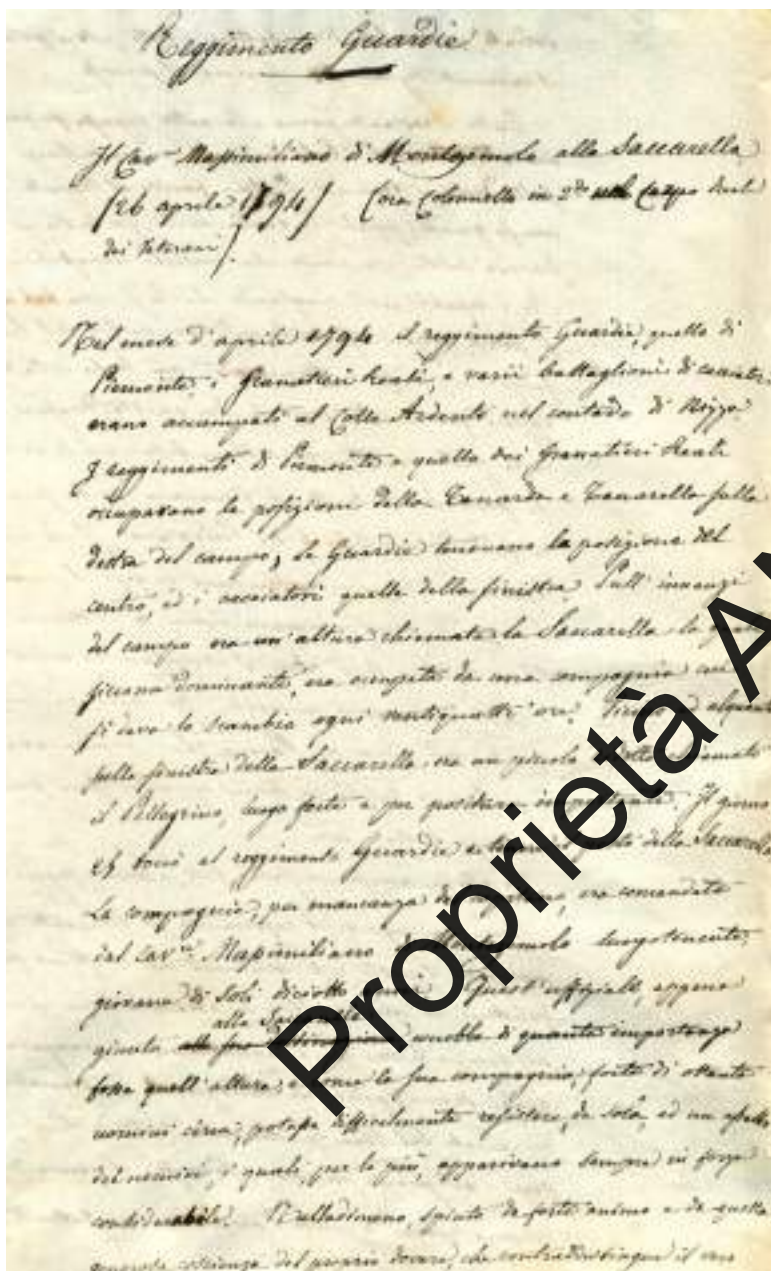 Reggimento Guardie
Il Cav.re Massimiliano di Montezemolo alla Saccarella
(26 aprile 1794) (ora Colonnello in 2do nel Corpo Reale
dei Veterani).
Nel mese d'aprile 1794 il reggimento Guardie, quello di
Piemonte, i Granatieri Reali, e varii battaglioni di
erano accampati al Colle Ardente nel contado di Nizza.
I reggimenti di Piemonte e quello dei Granatieri Reali
occupavano le posizioni della Tanarda e Tanarello sulla
destra del campo, le Guardie tenevano la posizione del
centro, ed i cacciatori quella della sinistra. Sull'innanzi
del campo era un'altura chiamata la Saccarella la
siccome dominante, era occupata da una compagnia
si dava lo scambio ogni ventiquattr'ore.
sulla sinistra della Saccarella era un piccolo
il Pellegrino, luogo forte e per posizione
25 toccò al reggimento Guardie della Saccarella
La compagnia, per mancanza del era comandata
dal Cav.re Massimiliano luogotenente,
giovane di soli diciotto Quest'uffiziale, appena
alla
giunto conobbe di quanta importanza
fosse quell'altura; e come la sua compagnia, forte di ottanta
uomini circa, potesse difficilmente resistere, da sola, ad un
dei nemici, i quali, per lo più, apparivano sempre in forza
considerabile. Nulladimeno, spinto da forte animo e da quella
generosa coscienza del proprio dovere, che contraddistingue il vero
Proprietà